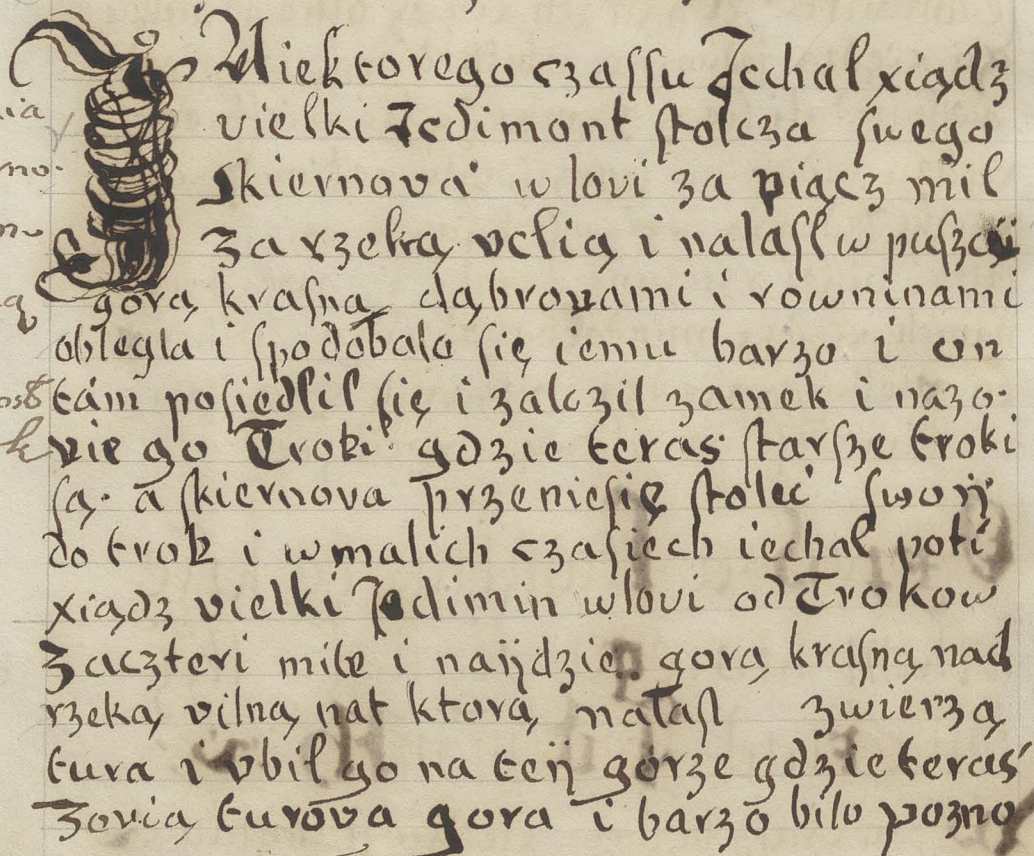 I Niektorego czassu Jechal xiądz
vielki Jedimont stolcza swego
skiernova w lovi za piącz mil
za rzeką velią i nalasl w puszczij
gorą krasną dąbrovami i rowninami
oblegla i spodobalo się iemu barzo i on
tam posiedlil się i zalozil zamek i nazo-
vie go Troki gdzie teras starsze troki
są. a skiernova przeniesię stolec swoij
do trok i w malich czasiech iechal poti
xiądz vielki Jedimin w lovi od Trokow
za czteri mile i naijdzie gorą krasną nad
rzeką vilną nat ktorą nalasl zwierzą
tura i vbil go na teij gorze gdzie teras
zovią turova gora i barzo bilo pozno